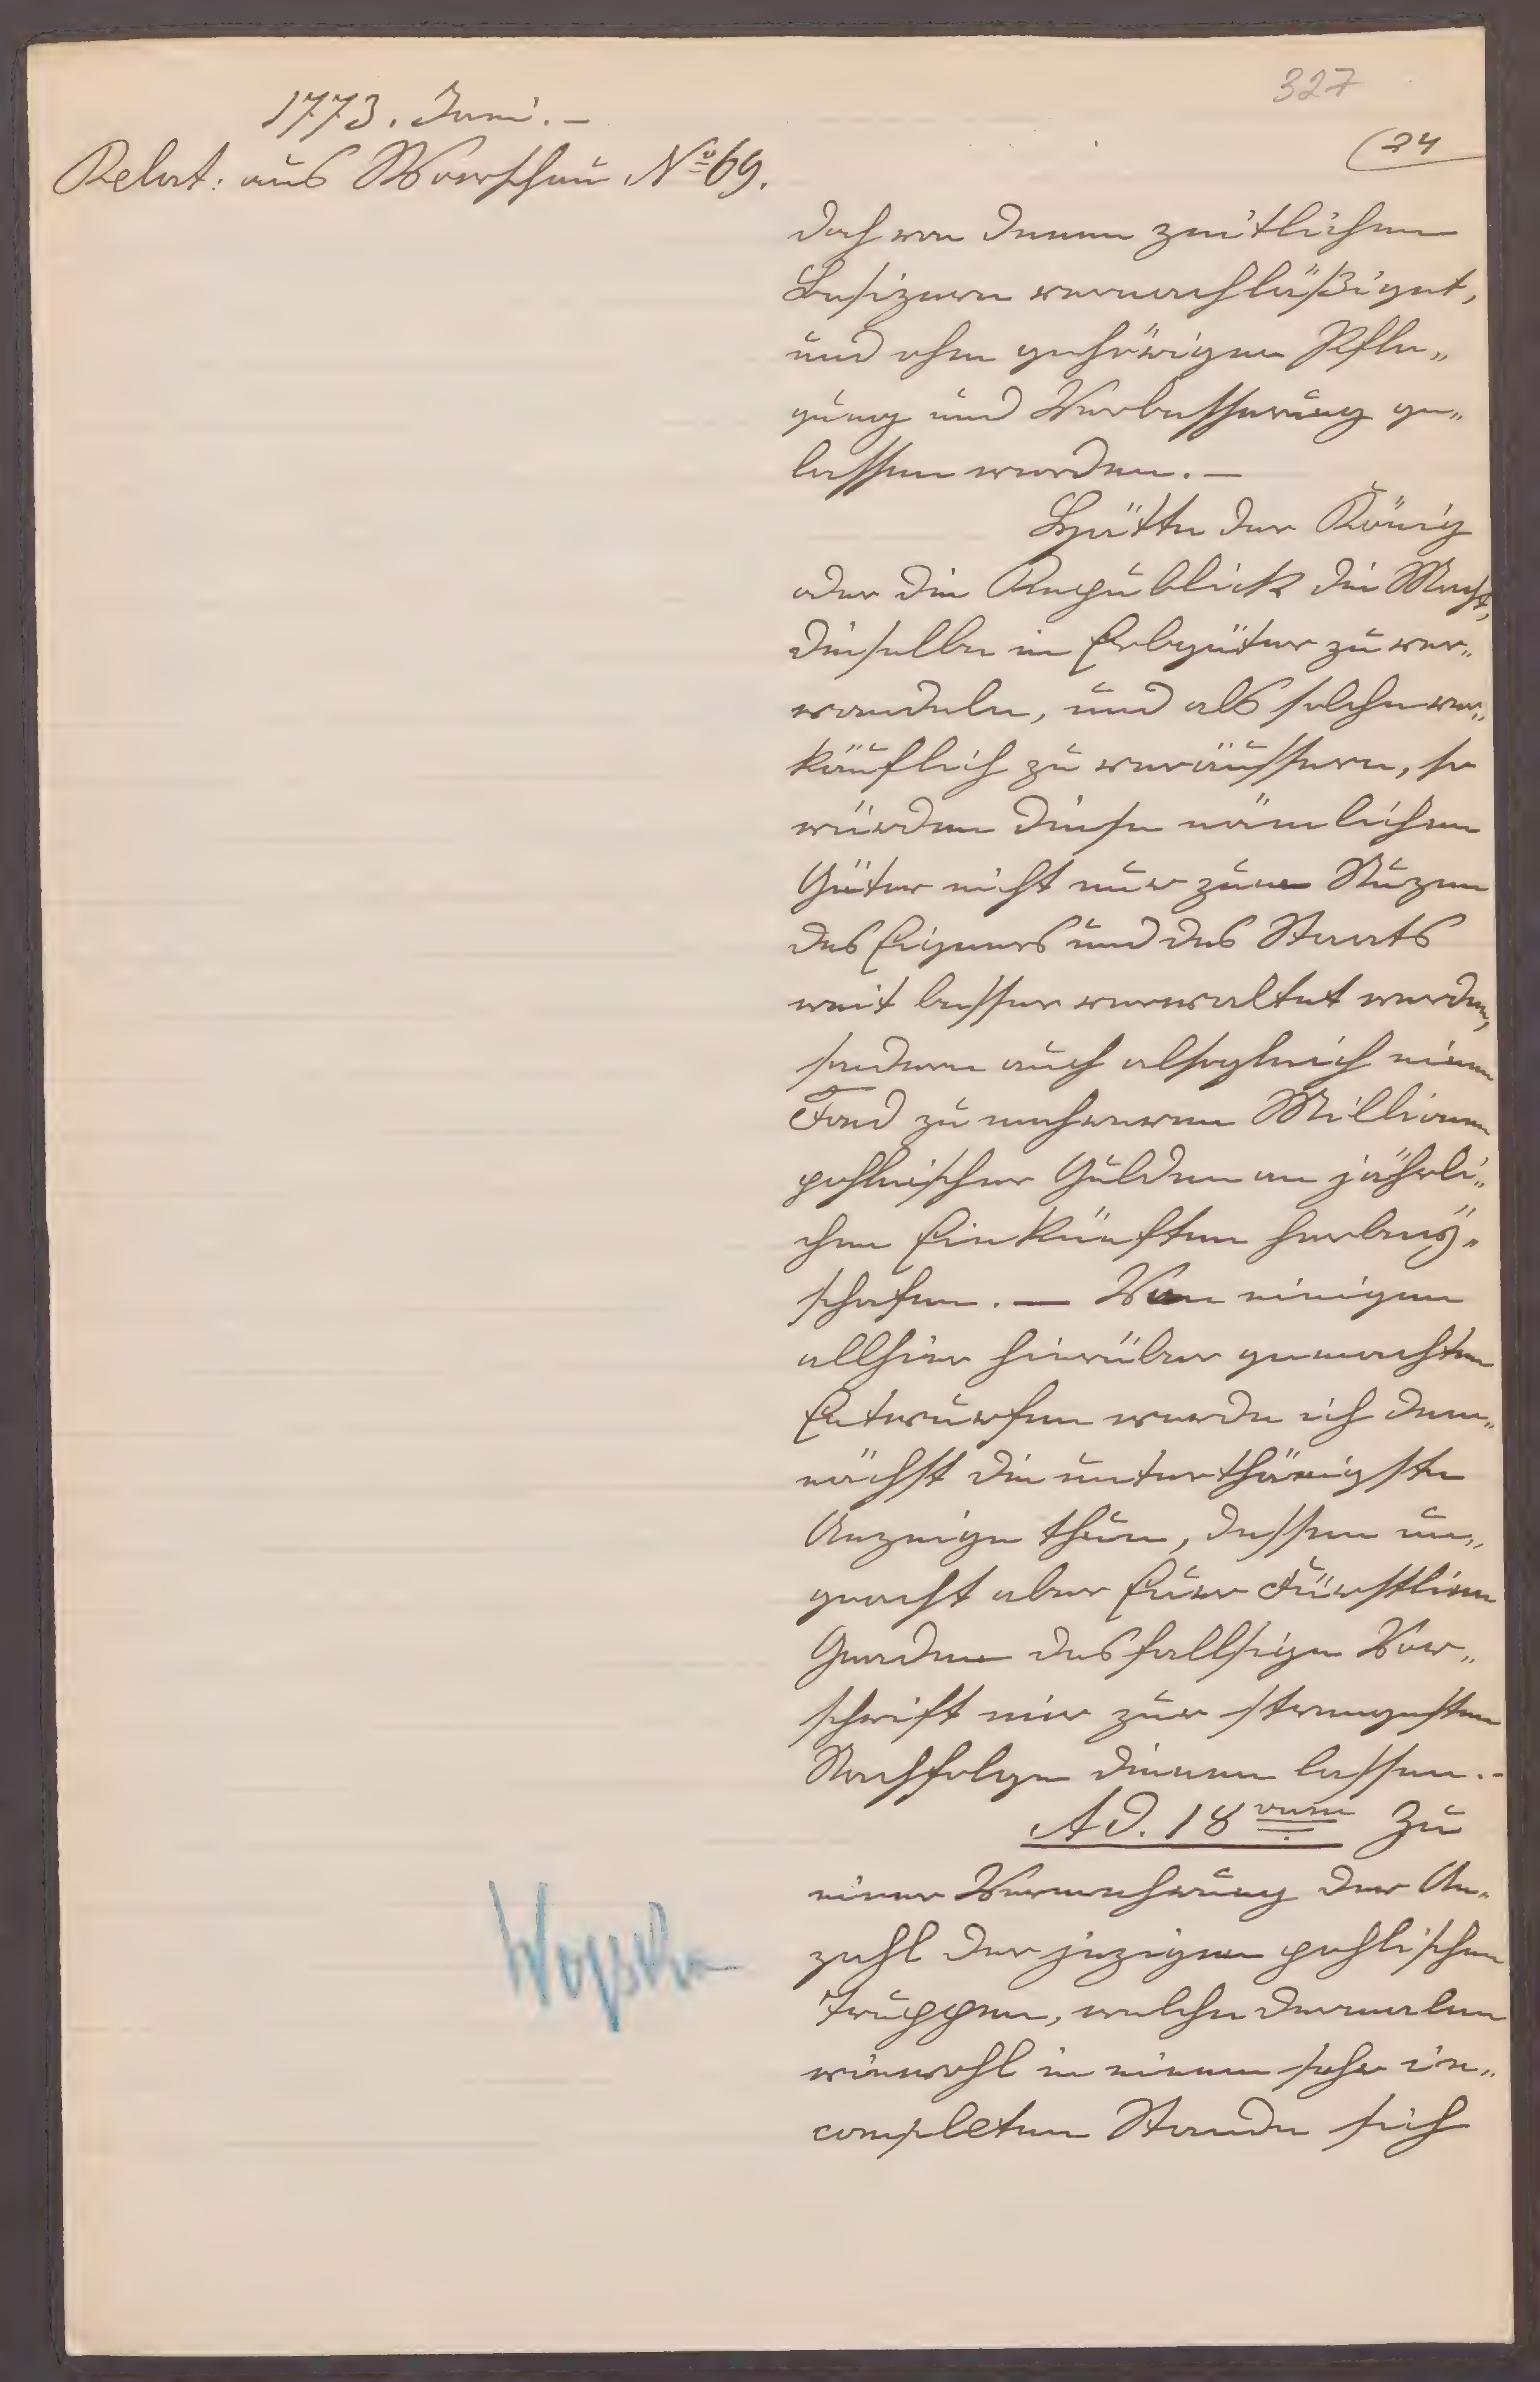 327
1773. Juni. -
(24
Relat: aus Warschau No 69.
doch von denen zeitlichen
Besizern vernachläßiget,
und ohne gehörigen Pfle„
gung und Verbesserung ge„
lassen werden. -
Hätte der König
oder die Republick die Macht,
dieselbe in Erbgüter zu ver„
wandeln, und als solche ver„
käuflich zu veräussern, so
würden diese nämlichen
Güter nicht nur zum Nuzen
des Eigeners und des Staats
weit besser verwaltet werden,
sondern auch alsogleich einen
Fond zu mehreren Millionen
pohlnischer Gulden an jährli„
chen Einkünften herbeÿ„
schafen. — Von einigen
allhier hierüber gemachten
Entwürfen werde ich dem„
nächst die unterthänigste
Anzeige thun, dessen un„
geacht aber Euer Fürstlichen
Gnaden desfallsige Vor„
schrift mir zur strengesten
Nachfolge dienen lassen. -
Ad. 18vum Zu
einer Vermehrung der An„
zahl der jezigen pohlischen
Truppen, welche dermalen
wiewohl in einem sehr in„
completen Stande sich